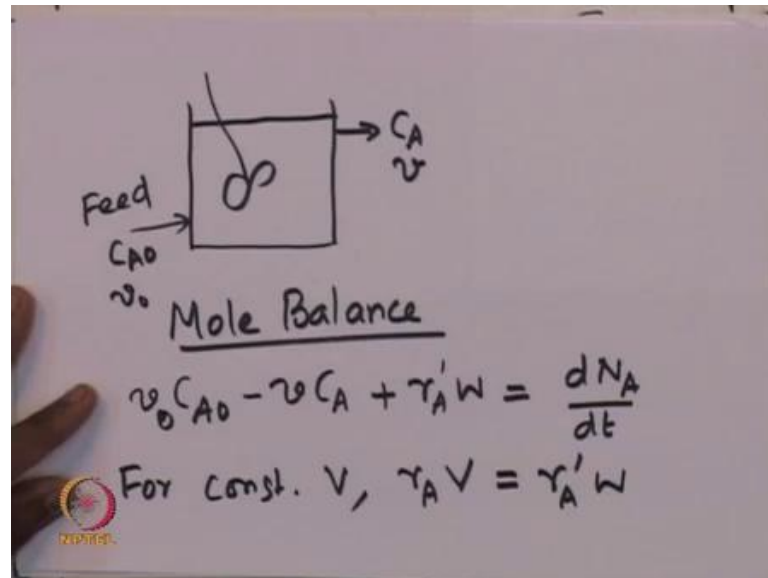 C_A
v
Feed
C_A0
v_0
Mole Balance
v_0 C_A0 - v C_A + r_A' W = dN_A/dt
For const. V, r_A V = r_A' W
NPTEL